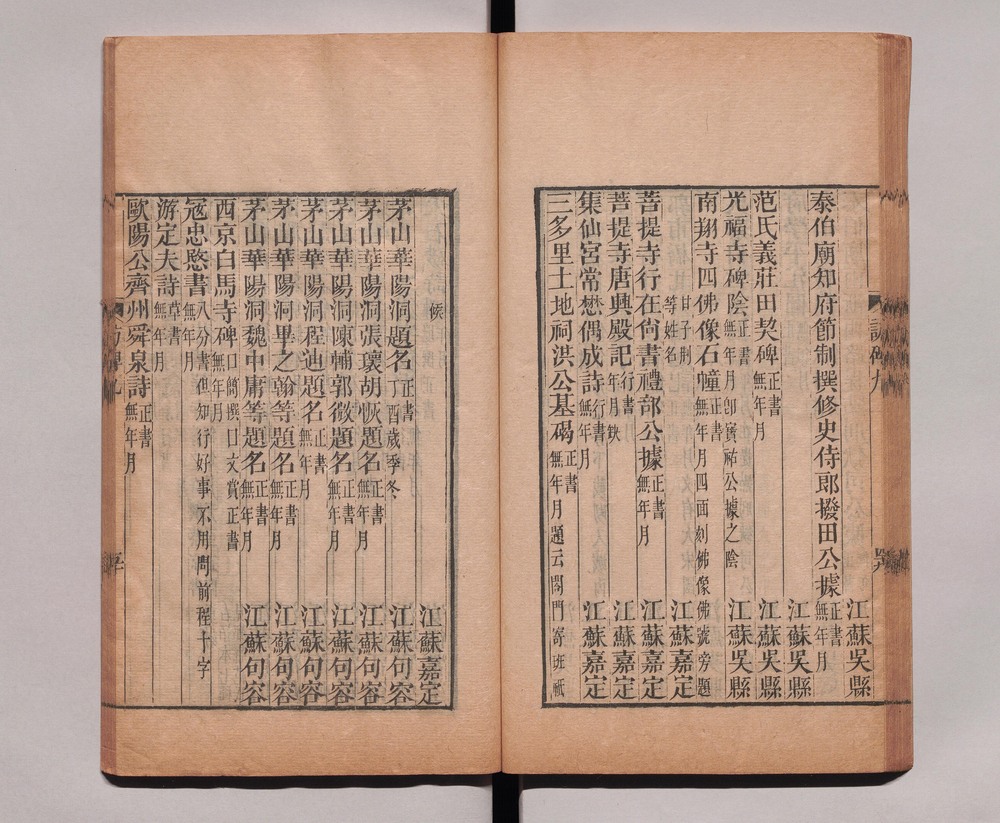 江蘇吳縣
泰伯廟知府節制撰修史侍郎撥田公據正書無年月
江蘇吳縣
范氏義莊田契碑正書無年月 江蘇吳縣
光福寺碑陰正書無年月即寅祐公據之陰 江蘇吳縣
南翔寺四佛像石幢正書無年月四面刻佛像佛號旁題
甘子刑等姓名 江蘇嘉定
菩提寺行在尙書禮部公據正書無年月 江蘇嘉定
菩提寺唐興殿記行書年月缺 江蘇嘉定
集仙宮常懋偶成詩行書無年月 江蘇嘉定
三多里土地祠洪公墓碣正書無年月題云閤門寄班祗
候 江蘇嘉定
茅山華陽洞題名正書丁酉歲季冬 江蘇句容
茅山華陽洞張瓌胡恢題名正書無年月 江蘇句容
茅山華陽洞陳輔郭微題名正書無年月 江蘇句容
茅山華陽洞程迪題名正書無年月 江蘇句容
茅山華陽洞畢之翰等題名正書無年月 江蘇句容
茅山華陽洞魏中庸等題名正書無年月 江蘇句容
西京白馬寺碑口簡撰口文賞正書無年月
寇忠愍書八分書但知行好事不用問前程十字無年月
游定夫詩草書無年月
歐陽公齊州舜泉詩正書無年月